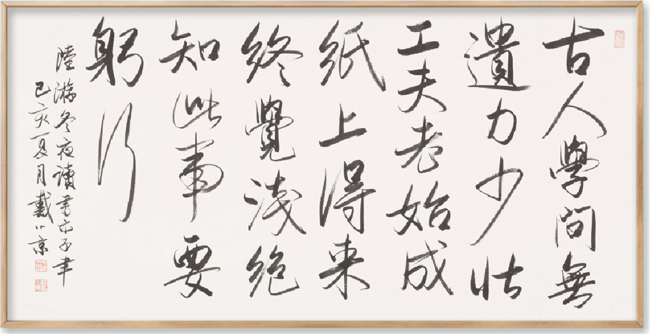 古人學問無
遺力少壮
工夫老始成
紙上得来
終覺淺絶
知此事要
躬行
陸游冬夜讀書示子聿
己亥夏月戴小京